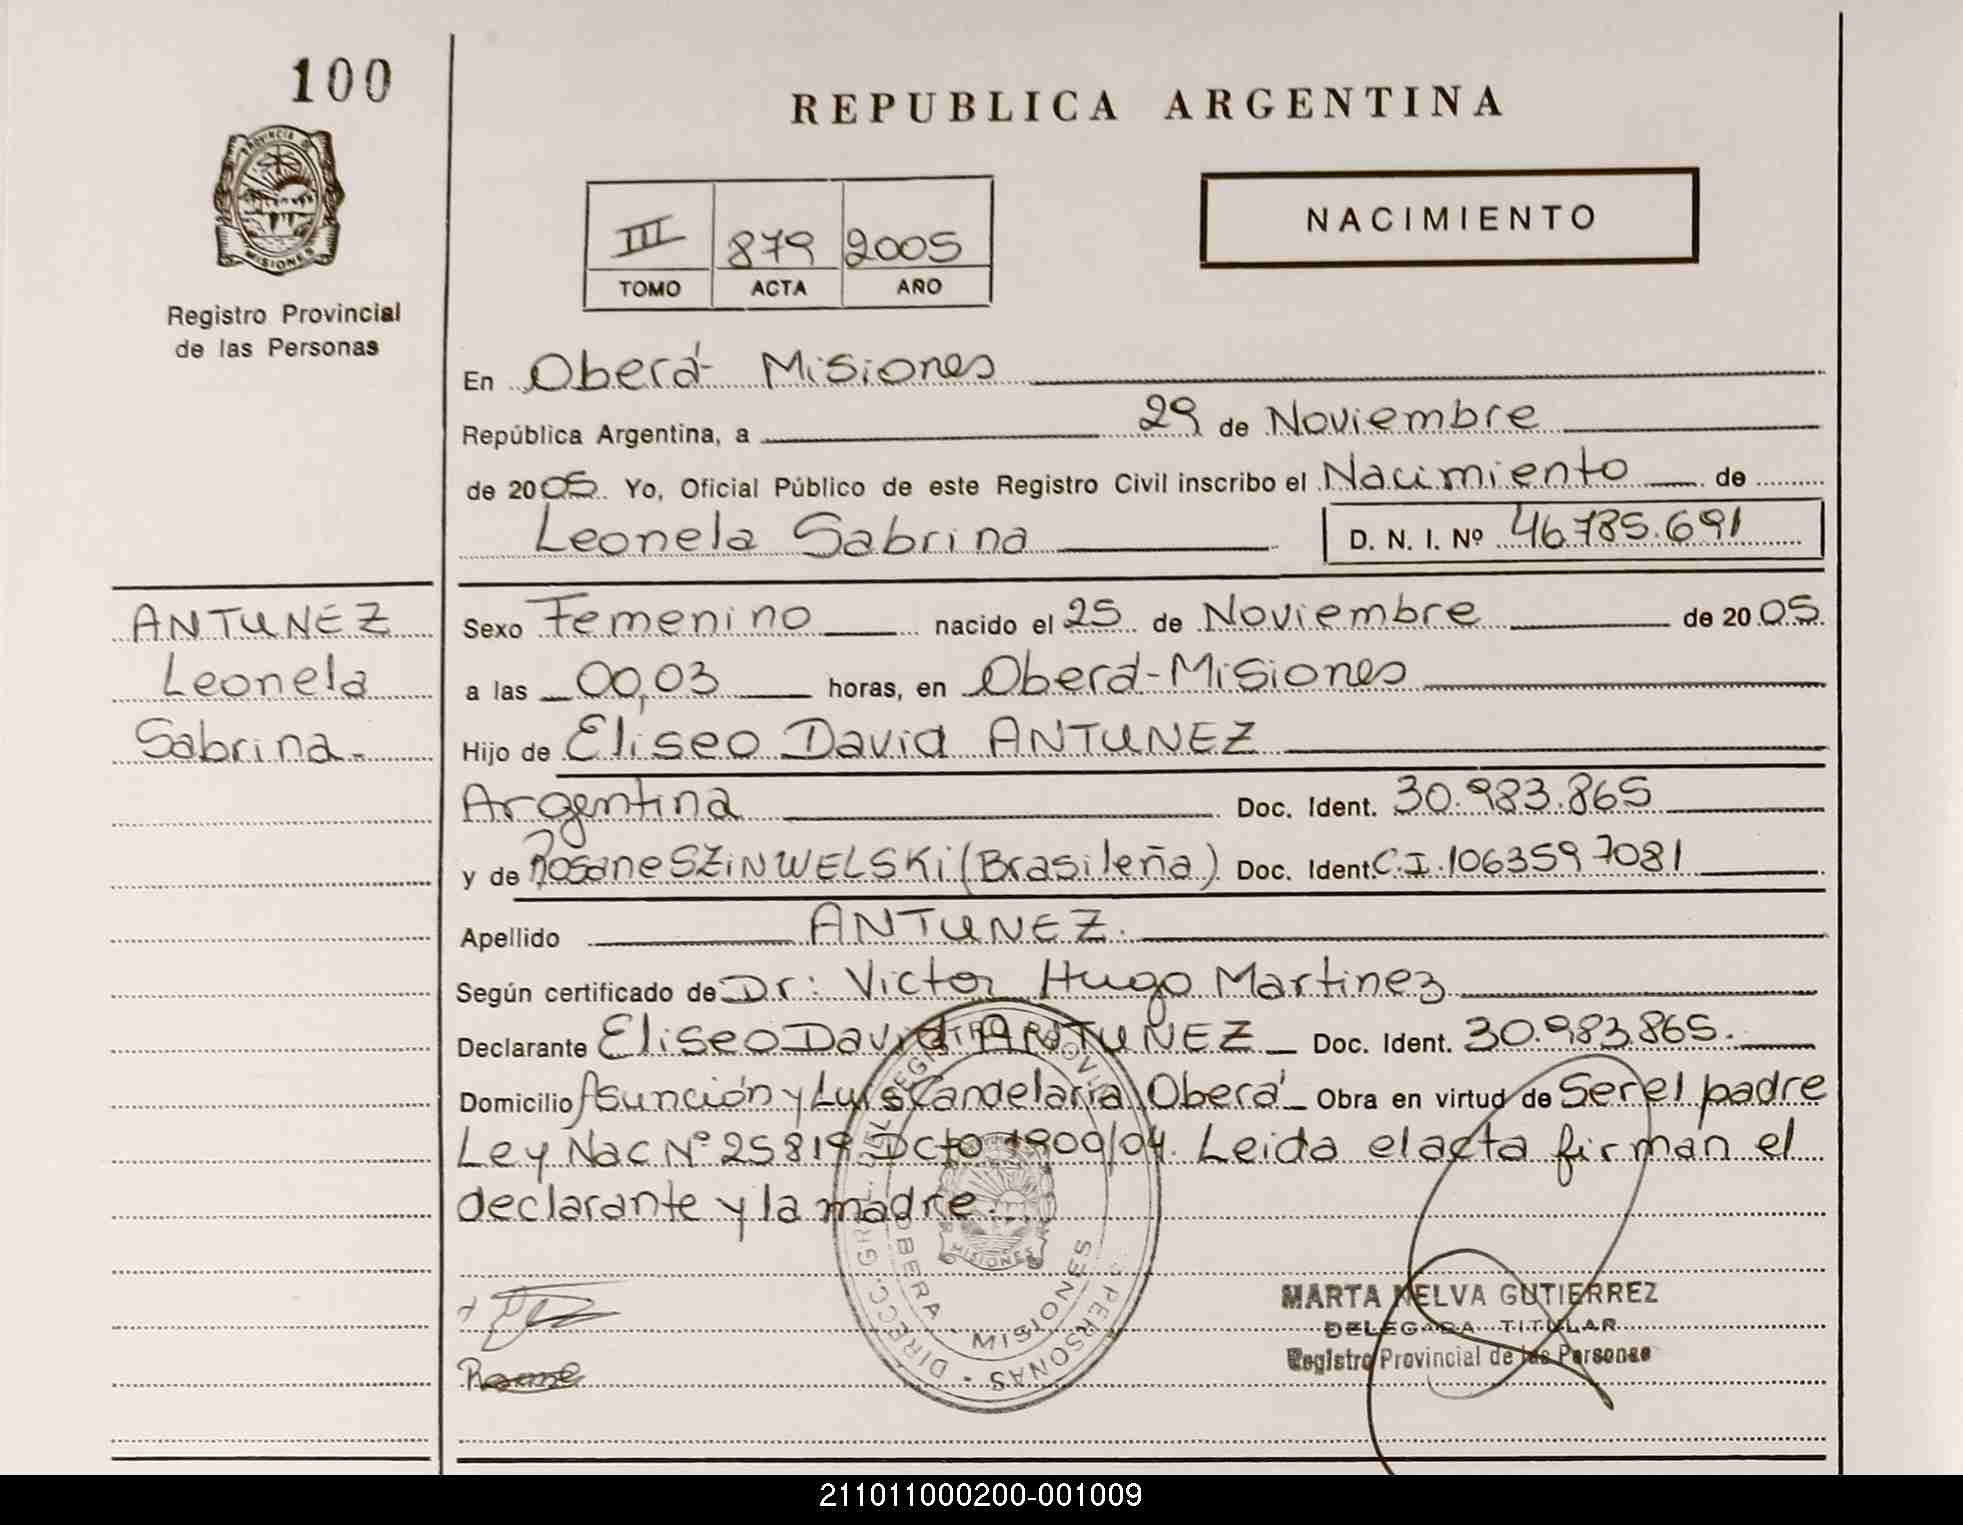 100
PROVINCIA DE
MISIONES
Registro Provincial
de las Personas
REPUBLICA ARGENTINA
III 879 2005
TOMO ACTA AÑO
NACIMIENTO
En Oberá- Misiones
República Argentina, a 29 de Noviembre
de 2005. Yo, Oficial Público de este Registro Civil inscribo el Nacimiento de
Leonela Sabrina D. N. I. Nº 46.785.691
ANTUNEZ
Leonela
Sabrina.-
Sexo Femenino nacido el 25 de Noviembre de 2005.
a las 00,03 horas, en Oberá-Misiones
Hijo de Eliseo David ANTUNEZ
Argentina Doc. Ident. 30.983.865
y de Rosane SZiNWELSKi (Brasileña) Doc. Ident. C.I. 1063597081
Apellido ANTUNEZ.
Según certificado de Dr: Victor Hugo Martinez
Declarante Eliseo David ANTUNEZ Doc. Ident. 30.983.865.
Domicilio Asunción y Luis Candelaria Oberá Obra en virtud de Ser el padre
Ley Nac Nº 25819 Dcto 1900/04. Leida el acta firman el
declarante y la madre.
MISIONES
OBERA MISIONES
PERSONAS
MARTA NELVA GUTIERREZ
DELEGADA TITULAR
Registro Provincial de las Personas
211011000200-001009